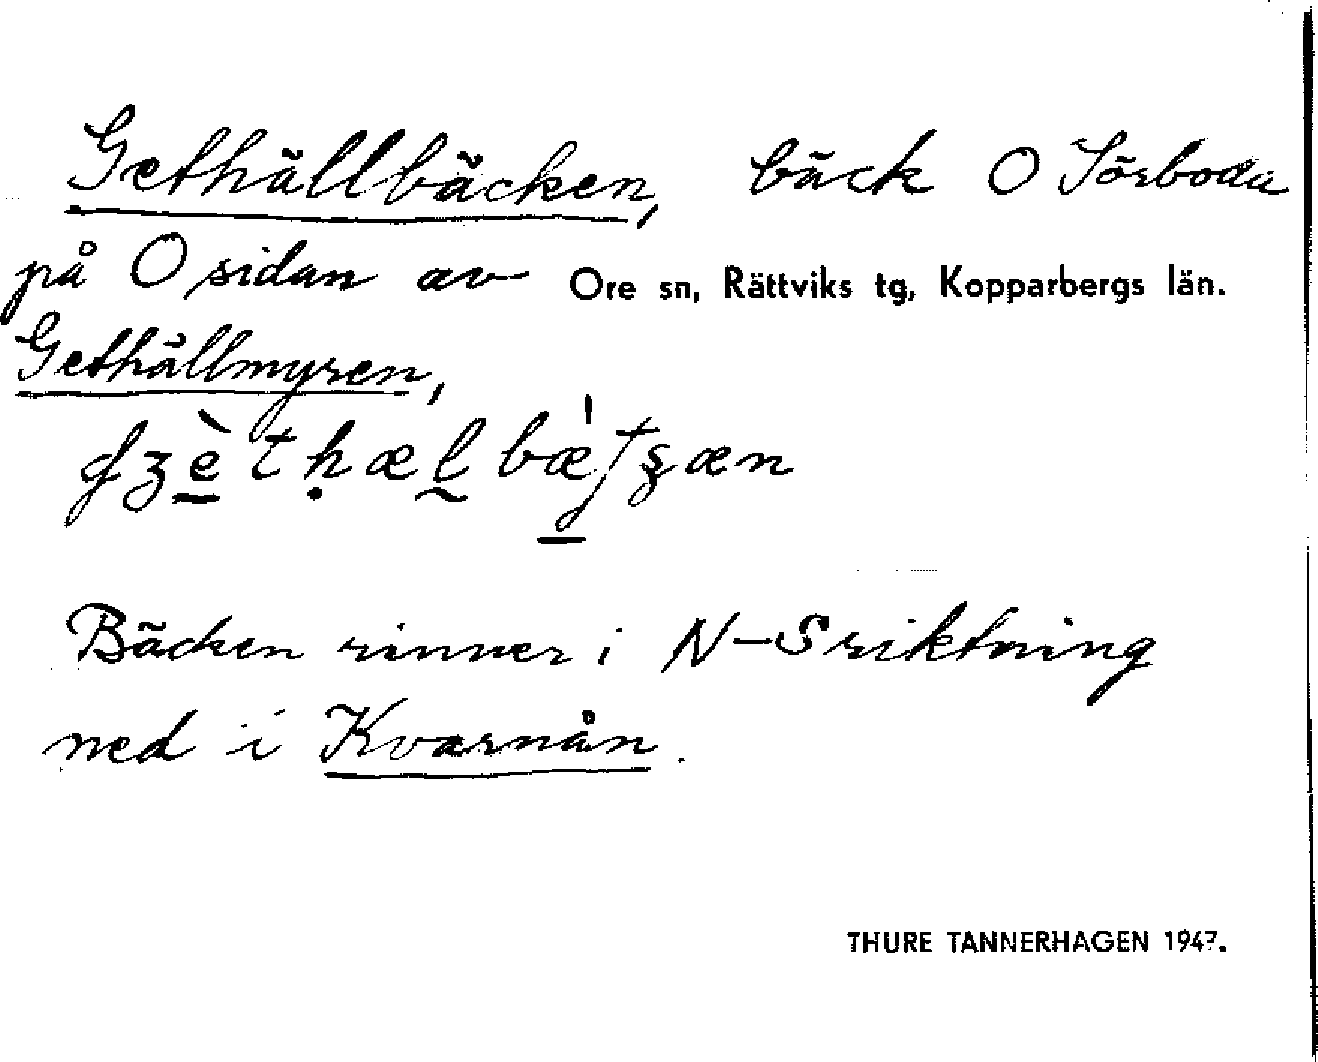 Gethällbäcken, bäck O Sörboda
på O sidan av Ore sn, Rättviks tg, Kopparbergs län.
Gethällmyren,
Bäcken rinner i N–Sriktning
ned i Kvarnån.
THURE TANNERHAGEN 1947.